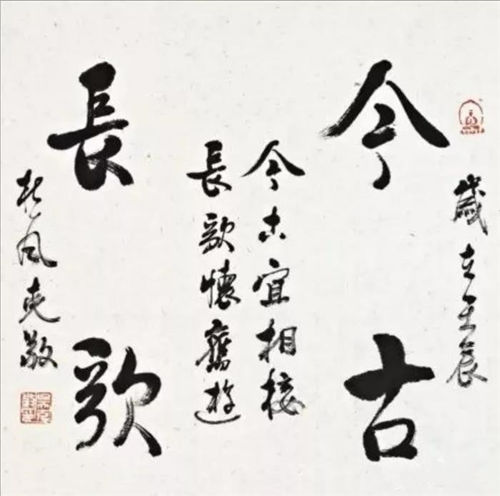 歲在壬辰
今古
今古宜相接
長歌懷舊遊
長歌
扶風克敬